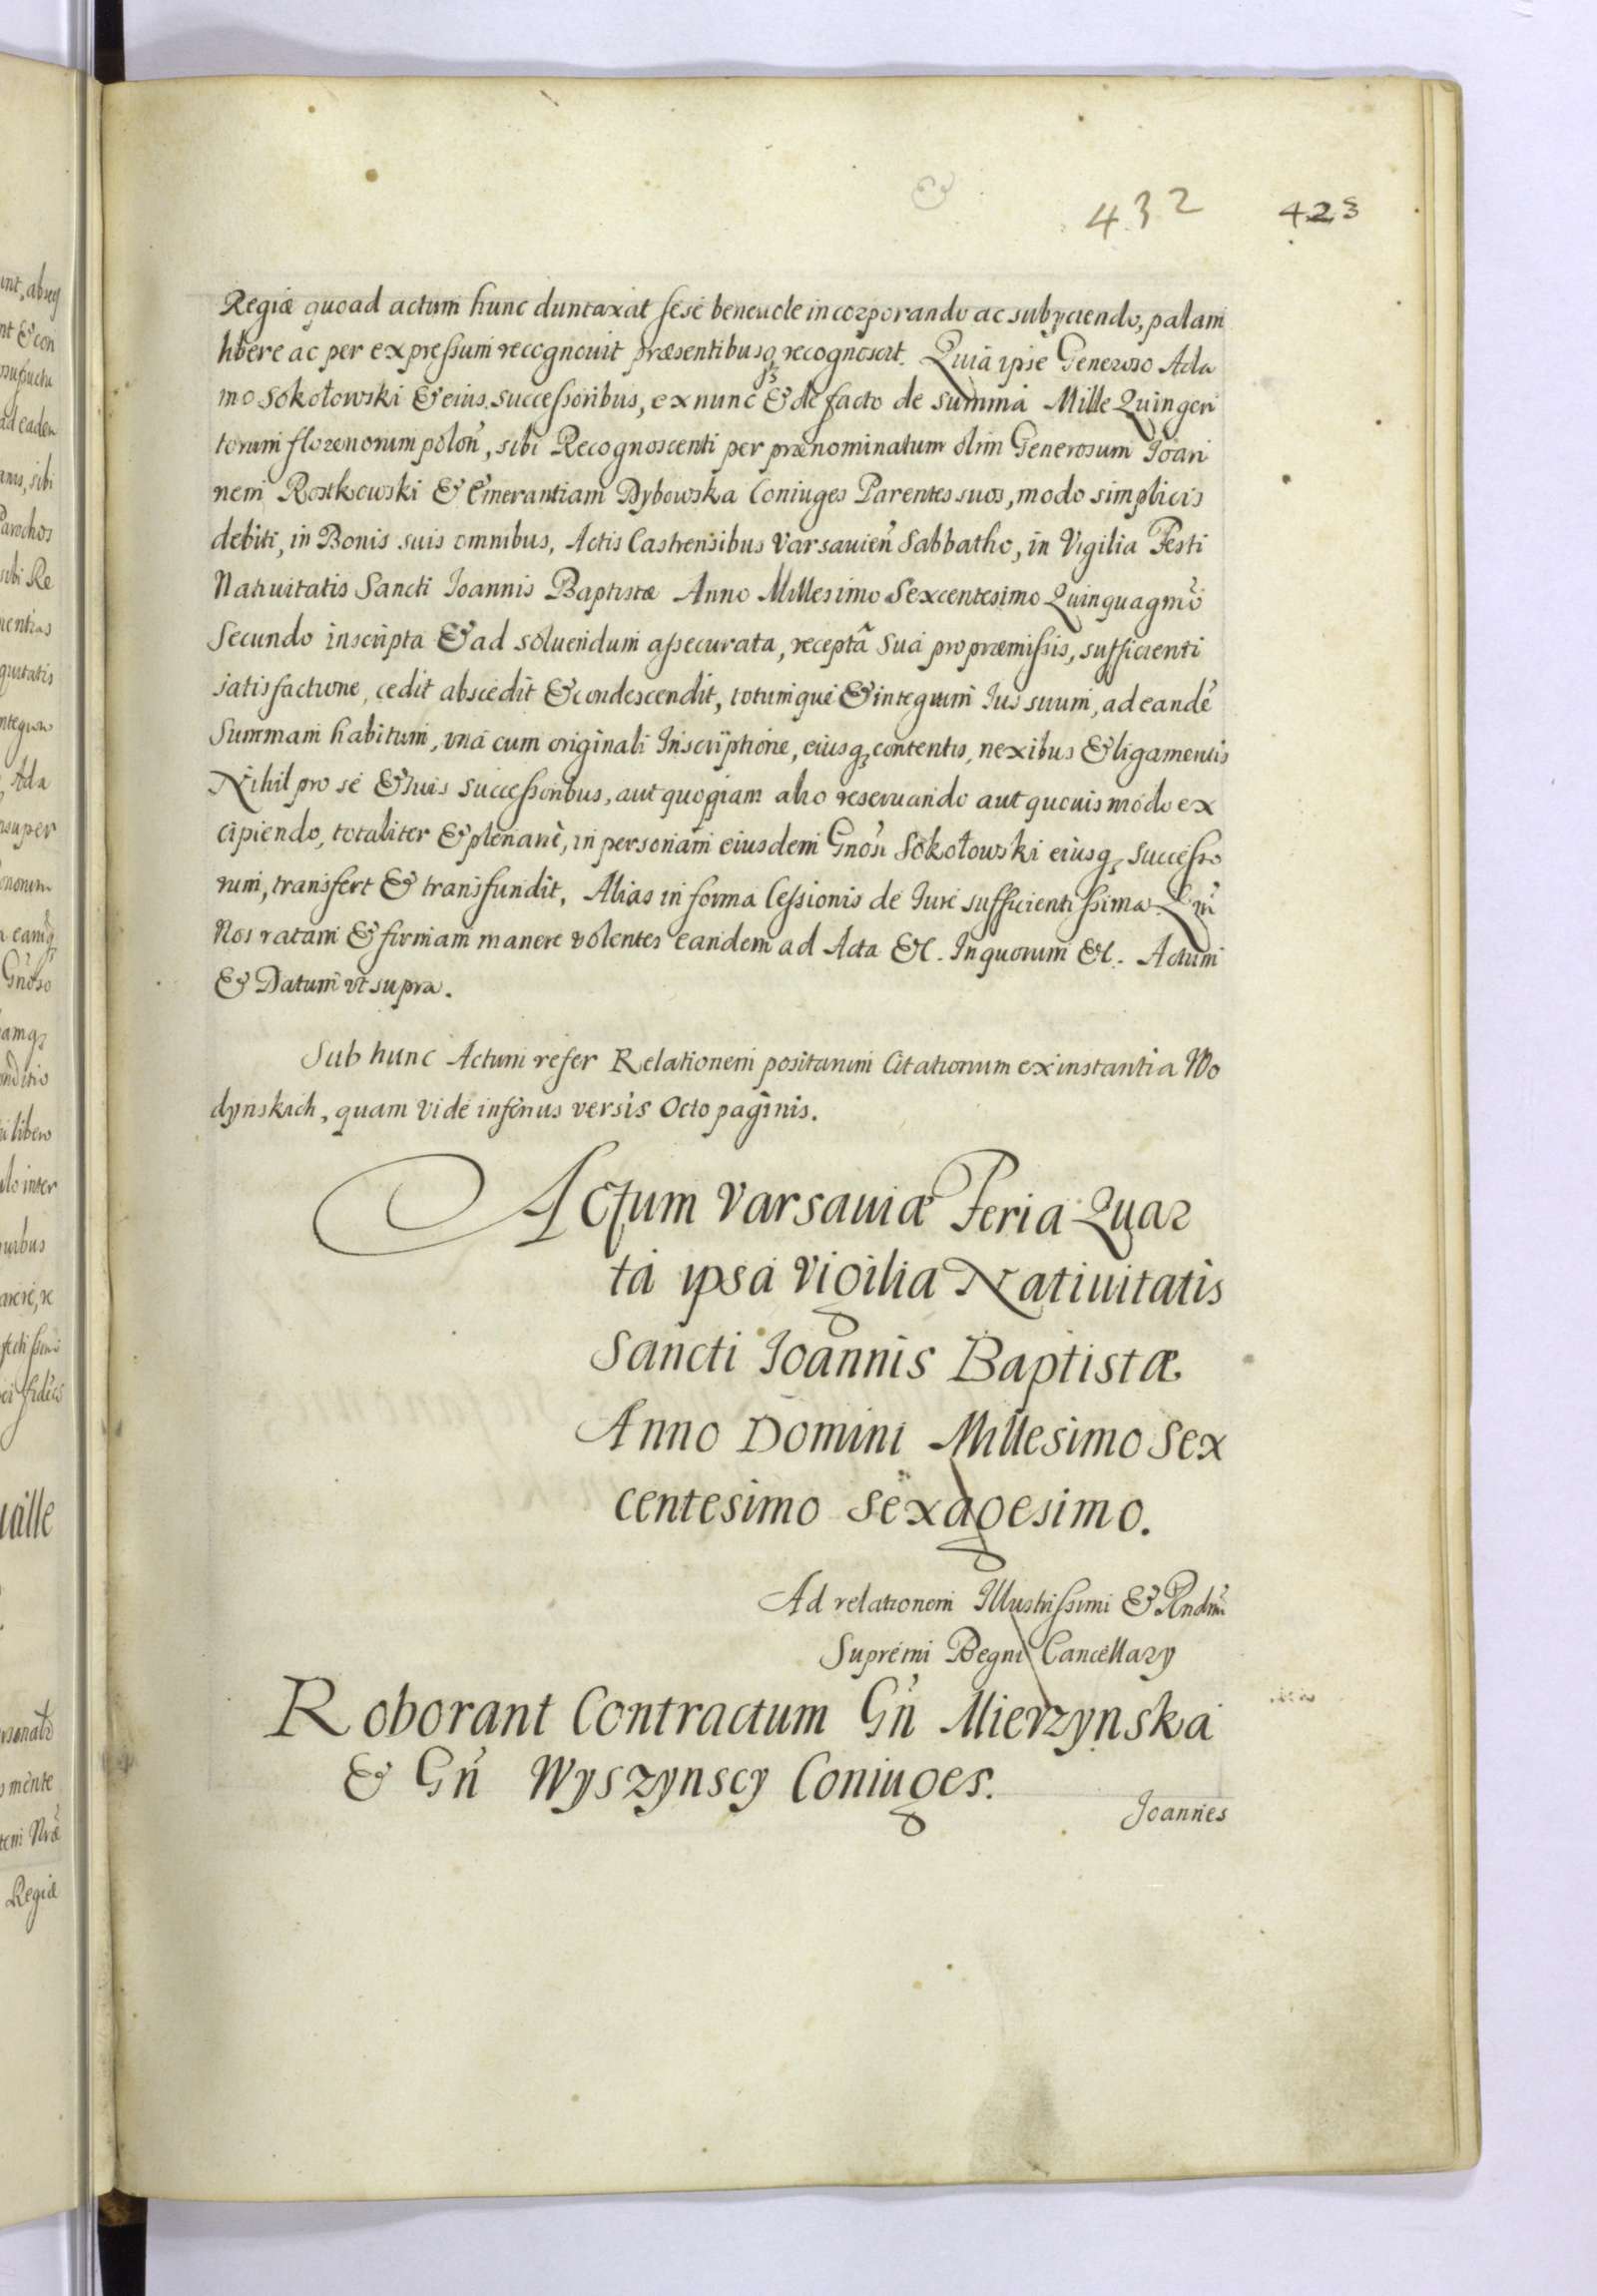 432 423
Regiæ quoad actum hunc duntaxat sese beneuole incorporando ac subyciendo, palam
libere ac per expressum recognouit præsentibusq recognoscit. Quia ipse Generoso Ada
mo Sokołowski & eius successoribus, ex nunc & de facto de summa Mille Quingen
torum florenorum polon̄, sibi Recognoscenti per prænominatum olim Generosum Ioan
nem Rostkowski & Emerantiam Dybowska Coniuges Parentes suos, modo simplicis
debiti, in Bonis suis omnibus, Actis Castrensibus Varsauien̄ Sabbatho, in Vigilia Festi
Natiuitatis Sancti Ioannis Baptistæ Anno Millesimo Sexcentesimo Quinquagmo
Secundo inscripta & ad soluendum assecurata, receptâ sua pro præmissis, sufficienti
satisfactione, cedit abscedit & condescendit, totumque & integrum Ius suum, ad eande
Summam habitum, vna cum originali Inscriptione, eiusq contentis, nexibus & ligamentis
Nihil pro se & suis successoribus, aut quoqiam alio reseruando aut quouis modo ex
cipiendo, totaliter & plenane, in personam eiusdem Gnosi Sokołowski eiusq successo
rum, transfert & transfundit, Alias in forma Cessionis de Iure sufficientissima Qm
Nos ratam & firmam manere volentes eandem ad Acta &c. In quorum &c. Actum
& Datum vt supra.
Sub hunc Actum refer Relationem positarum Citationum ex instantia Wo
dynskich, quam vide inferius versis Octo paginis.
Actum Varsauiæ Feria Quar
ta ipsa Vigilia Natiuitatis
Sancti Ioannis Baptistæ
Anno Domini Millesimo Sex
centesimo Sexagesimo.
Ad relationem Illustrissimi & Rndmi
Supremi Regni Cancellary
Roborant Contractum Gn̄ Mierzynska
& Gn̄ Wyszynscy Coniuges.
Joannes